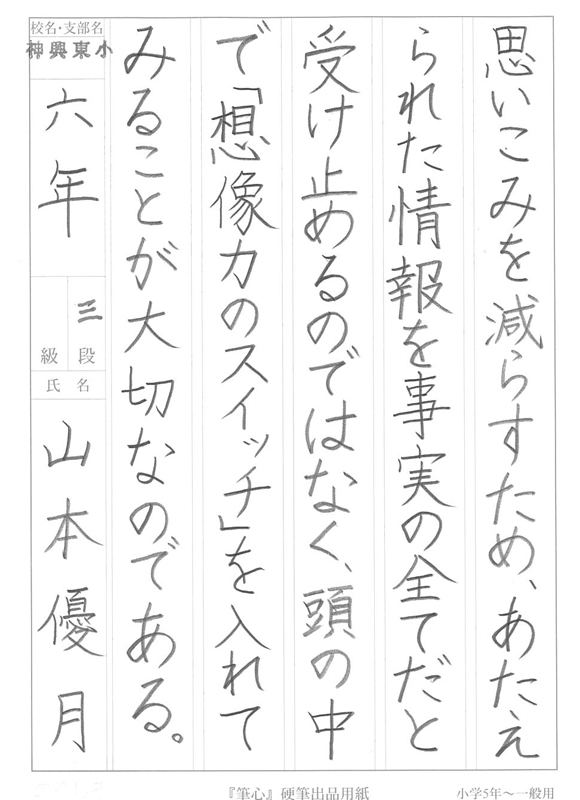 思いこみを減らすため、あたえ
られた情報を事実の全てだと
受け止めるのではなく、頭の中
で「想像力のスイッチ」を入れて
みることが大切なのである。
校名・支部名
神興東小
六年
三段
級
氏名
山本優月
『筆心』硬筆出品用紙
小学5年〜一般用